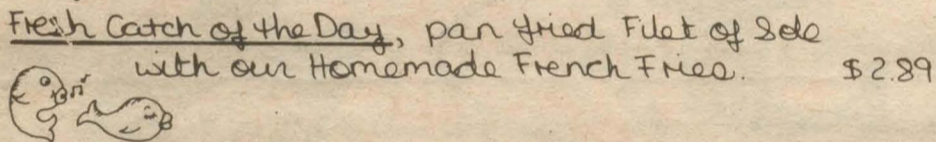 Fresh Catch of the Day, pan fried Filet of Sole
with our Homemade French Fries. $2.89